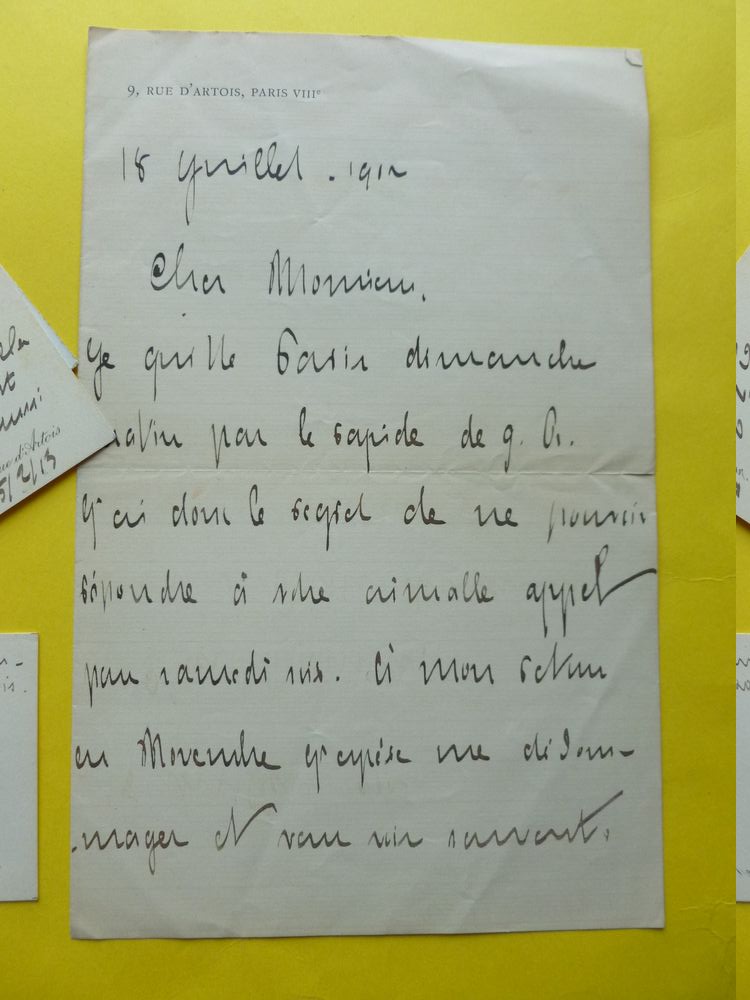 9, RUE D'ARTOIS, PARIS VIIIᵉ
18 Juillet . 1912
Cher Monsieur,
Je quitte Paris dimanche
matin par le rapide de 9. h.
J'ai donc le regret de ne pouvoir
répondre à votre aimable appel
pour samedi soir. A mon retour
en Novembre j'espère me dédom-
mager et vous voir souvent.
rue d'Artois
5/2/13